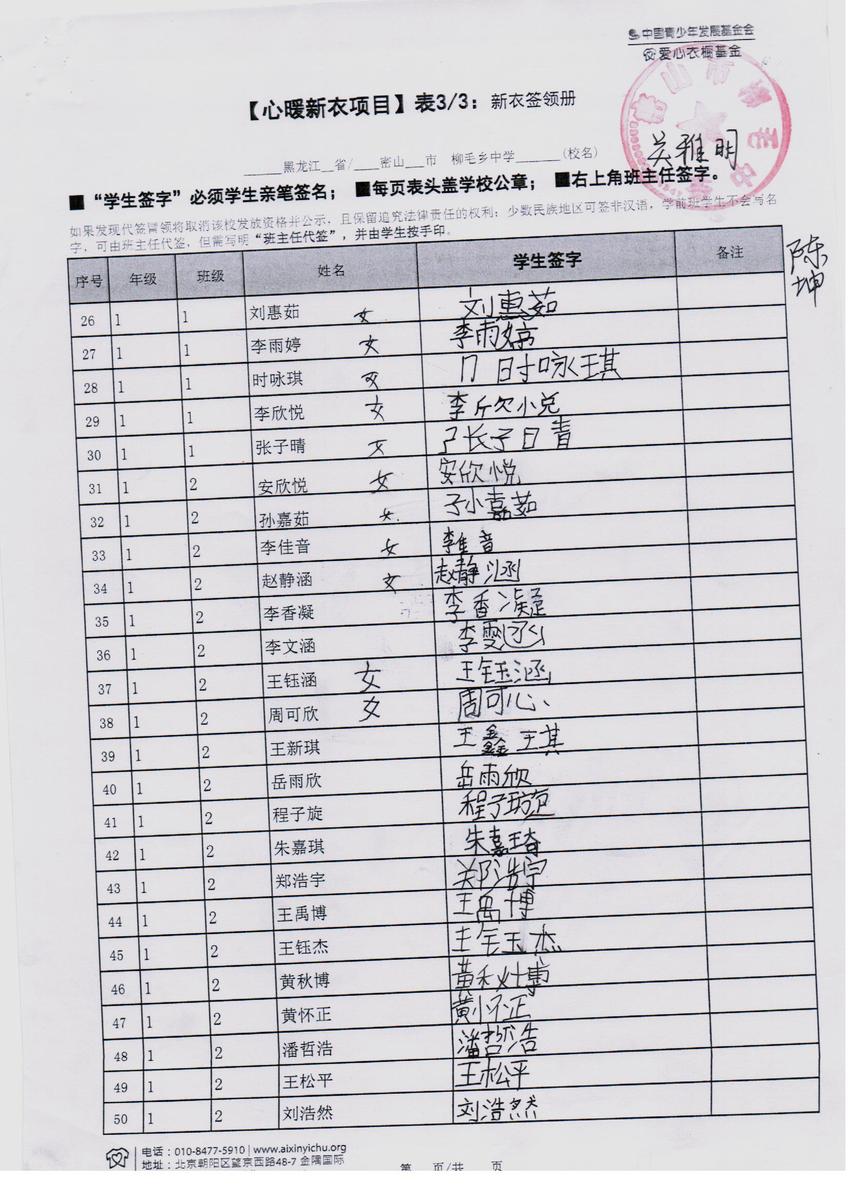 中国青少年发展基金会
爱心衣橱基金
【心暖新衣项目】表3/3：新衣签领册
吴雅明
______黑龙江__省/____密山___市 柳毛乡中学_______(校名)
■“学生签字”必须学生亲笔签名；■每页表头盖学校公章；■右上角班主任签字。
如果发现代签冒领将取消该校发放资格并公示，且保留追究法律责任的权利；少数民族地区可签非汉语，学前班学生不会写名
字，可由班主任代签，但需写明“班主任代签”，并由学生按手印。
陈坤
序号 年级 班级 姓名 学生签字 备注
26 1 1 刘惠茹 女 刘惠茹
27 1 1 李雨婷 女 李雨婷
28 1 1 时咏琪 女 时咏琪
29 1 1 李欣悦 女 李欣悦
30 1 1 张子晴 女 张子晴
31 1 2 安欣悦 女 安欣悦
32 1 2 孙嘉茹 女. 孙嘉茹
33 1 2 李佳音 女 李佳音
34 1 2 赵静涵 女 赵静涵
35 1 2 李香凝 李香凝
36 1 2 李文涵 李雯涵
37 1 2 王钰涵 女 王钰涵
38 1 2 周可欣 女 周可心
39 1 2 王新琪 王鑫琪
40 1 2 岳雨欣 岳雨欣
41 1 2 程子旋 程子璇
42 1 2 朱嘉琪 朱嘉琦
43 1 2 郑浩宇 郑浩宇
44 1 2 王禹博 王禹博
45 1 2 王钰杰 王钰杰
46 1 2 黄秋博 黄秋博
47 1 2 黄怀正 黄怀正
48 1 2 潘哲浩 潘哲浩
49 1 2 王松平 王松平
50 1 2 刘浩然 刘浩然
电话：010-8477-5910 | www.aixinyichu.org
地址：北京朝阳区望京西路48-7 金隅国际
第 页/共 页